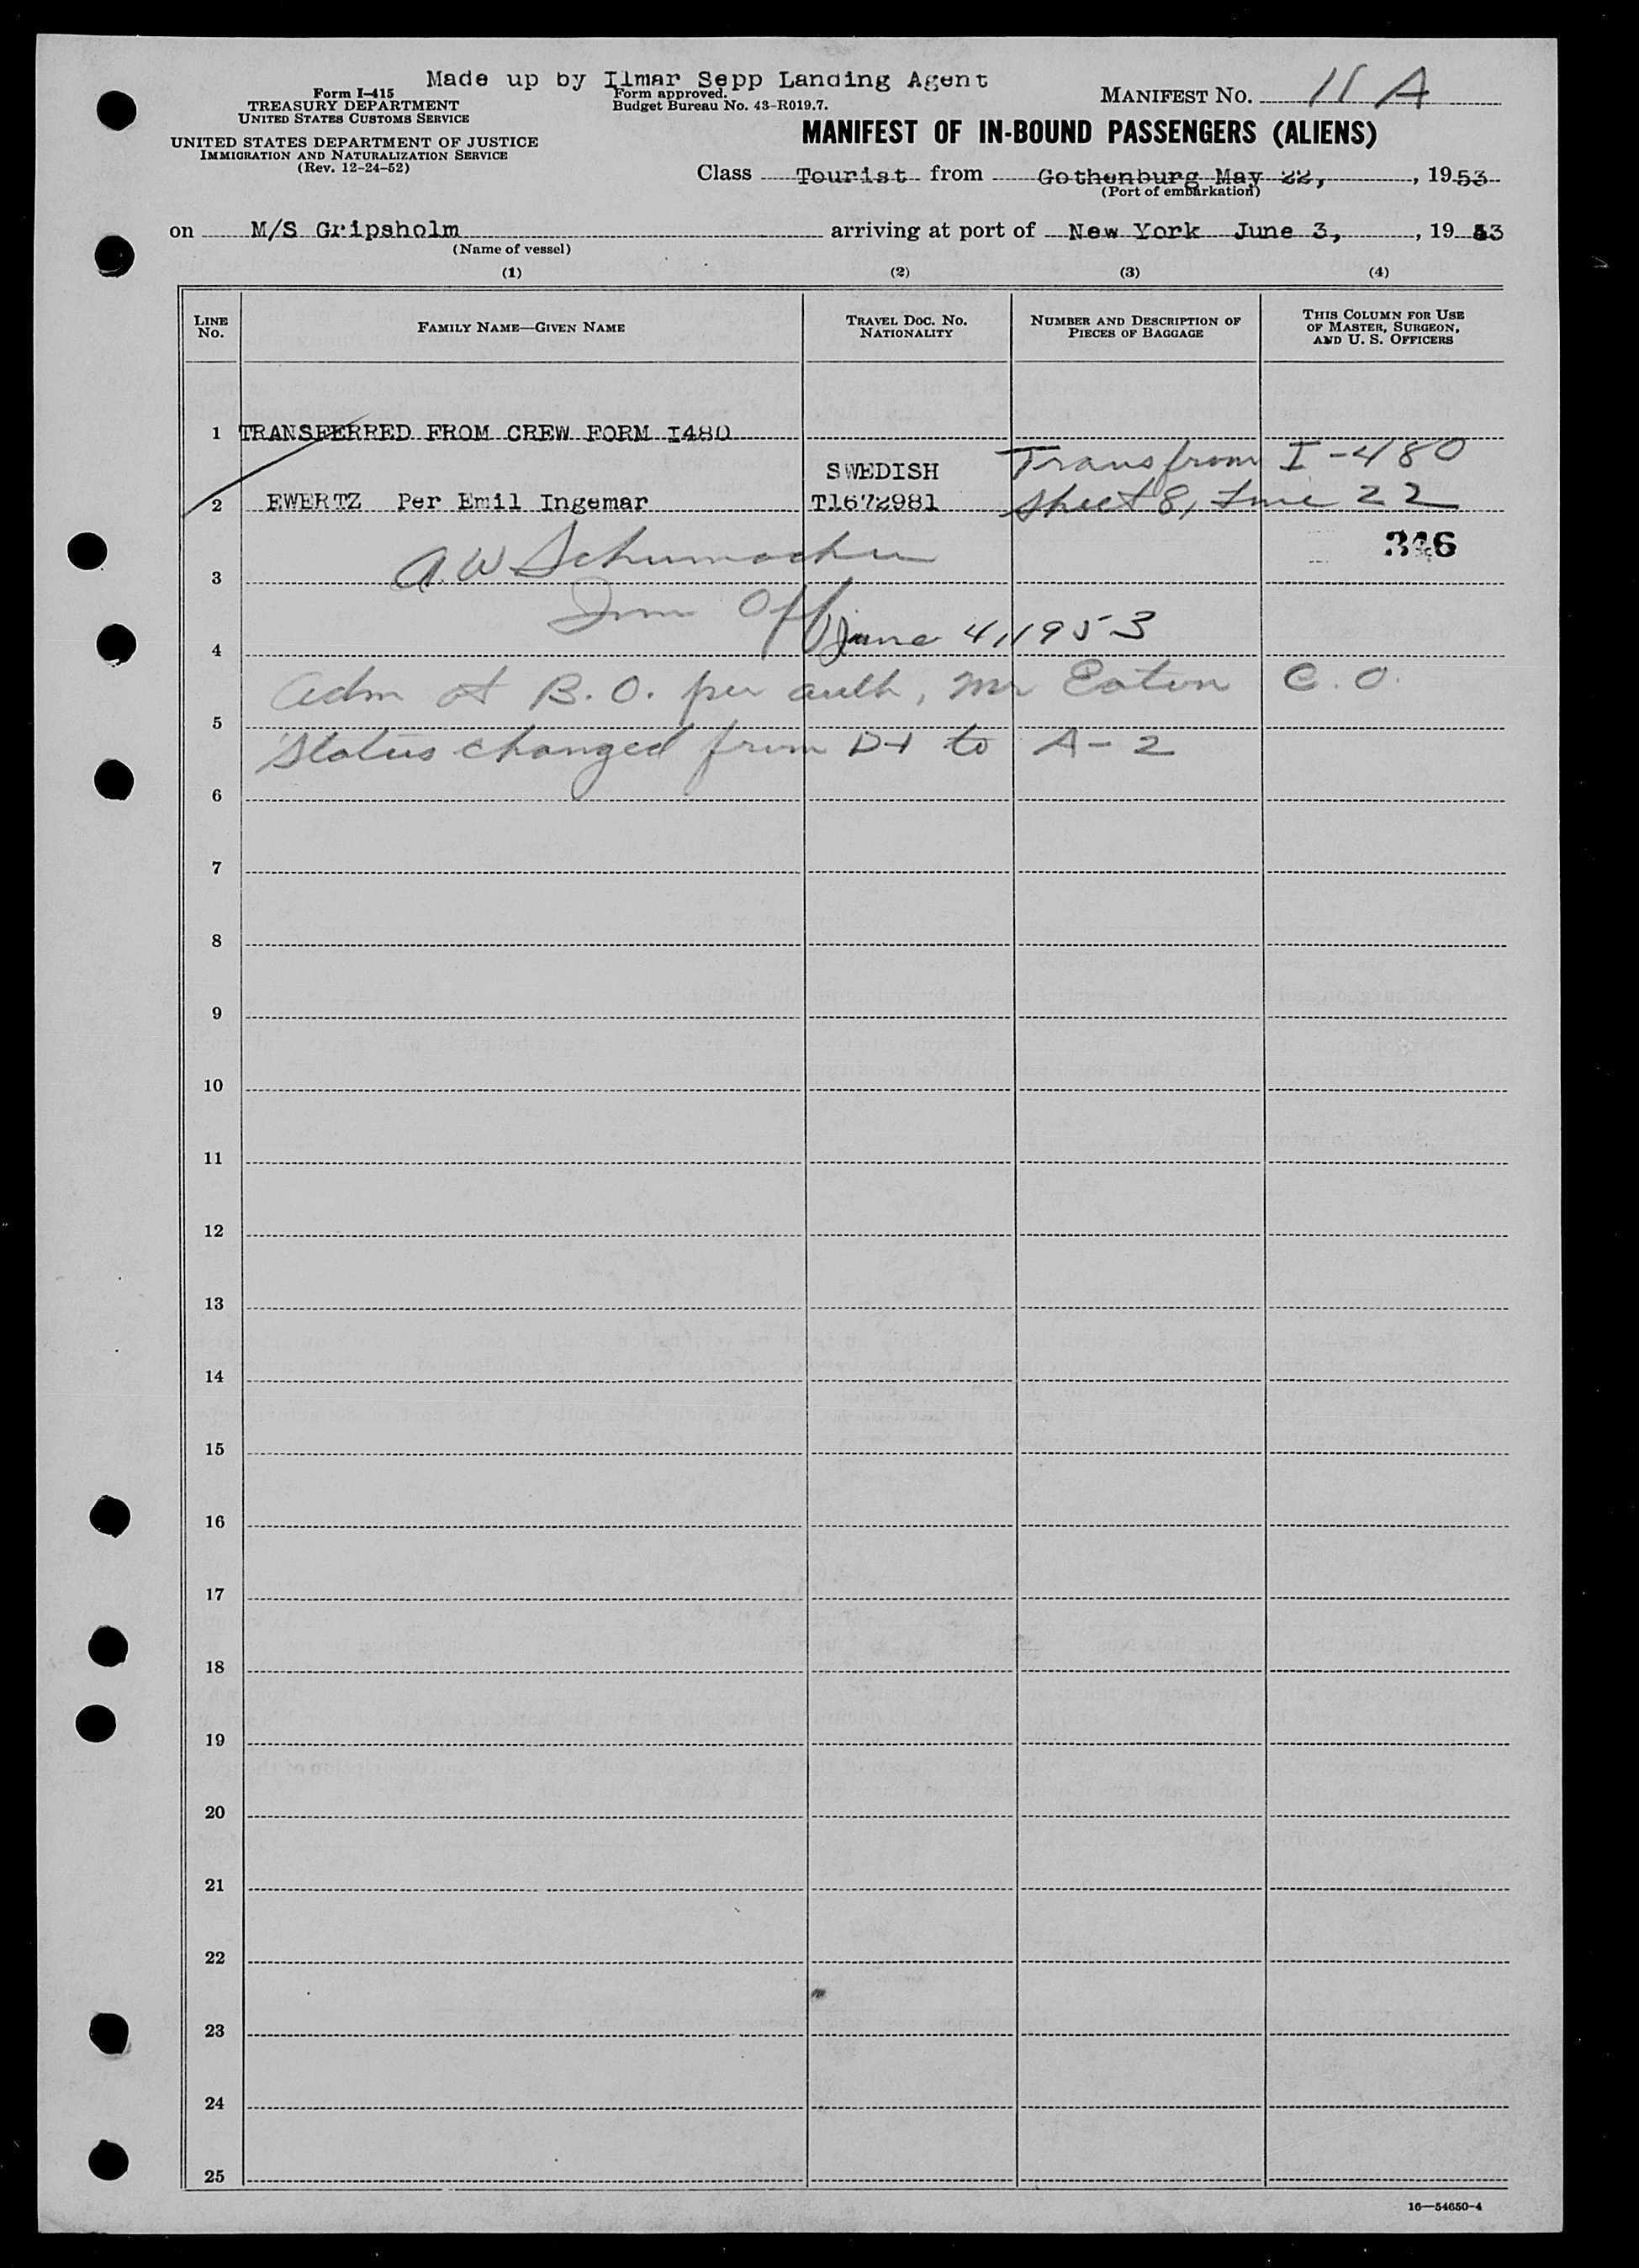 Made up by Ilmar Sepp Landing Agent
Form I-415
TREASURY DEPARTMENT
UNITED STATES CUSTOMS SERVICE
UNITED STATES DEPARTMENT OF JUSTICE
IMMIGRATION AND NATURALIZATION SERVICE
(Rev. 12-24-52)
Form approved.
Budget Bureau No. 43-R019.7.
MANIFEST NO. 11 A
MANIFEST OF IN-BOUND PASSENGERS (ALIENS)
Class Tourist from Gothenburg May 22, , 1953
(Port of embarkation)
on M/S Gripsholm arriving at port of New York June 3, , 19 53
(Name of vessel)
(1) (2) (3) (4)
LINE NO. FAMILY NAME—GIVEN NAME TRAVEL DOC. NO. NATIONALITY NUMBER AND DESCRIPTION OF PIECES OF BAGGAGE THIS COLUMN FOR USE OF MASTER, SURGEON, AND U. S. OFFICERS
1 TRANSFERRED FROM CREW FORM I480
SWEDISH Trans from I-480
2 EWERTZ Per Emil Ingemar T1672981 sheet 8, Line 22
346
3 A.W Schumacher
Imm Off
4 June 4, 1953
Adm at B.O. per auth, Mr Eaton C.O.
5
Status changed from D-1 to A-2
6
7
8
9
10
11
12
13
14
15
16
17
18
19
20
21
22
23
24
25
16—54650-4